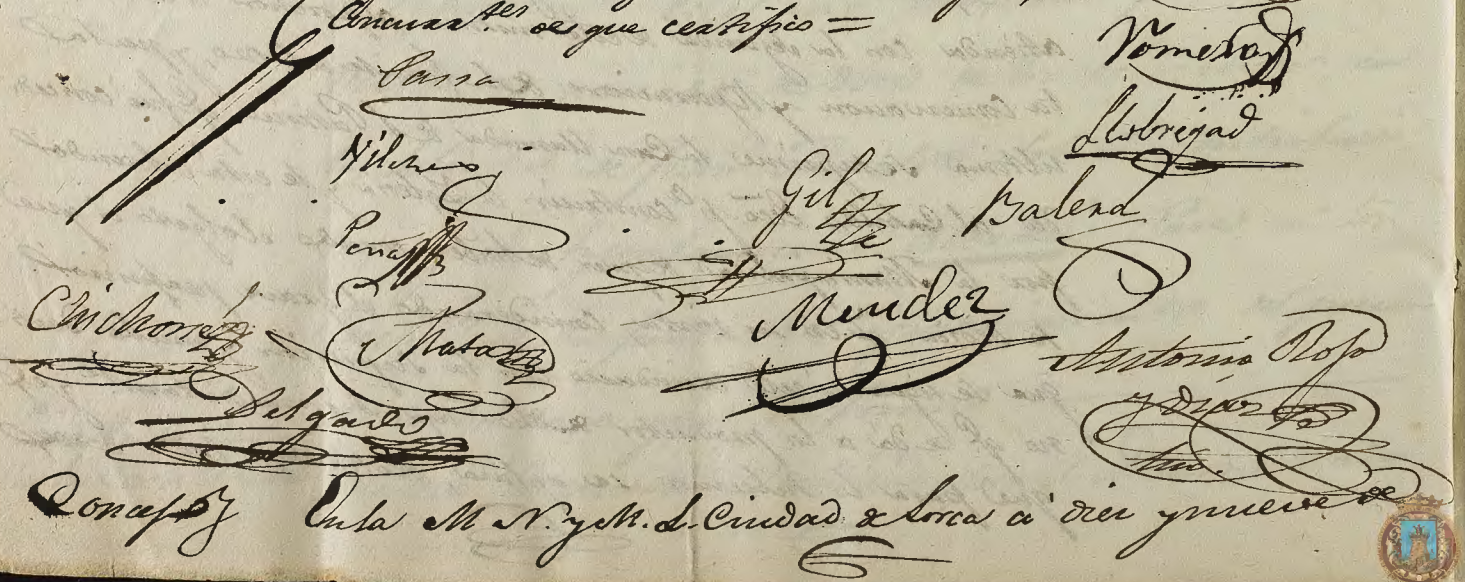 Concurr.tes de que certifico =
Parra
Romera
Llobregad
Vilches
Gil
Balend
Peña
Chichorro
Mata
Mendez
Antonio Roso
y Diaz
Delgado
Srio.
Concejo
En la M. N. y M. L. Ciudad de Lorca á diez y nueve de